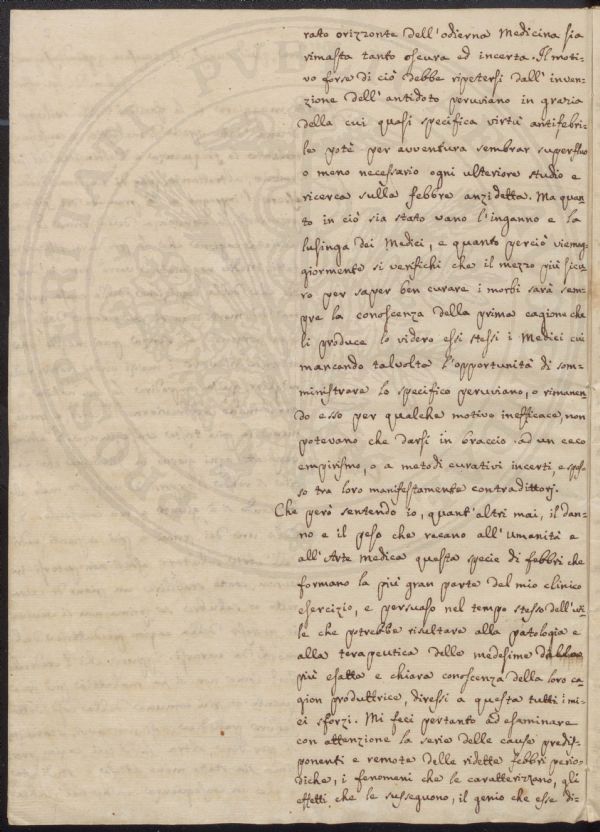 rato orizzonte dell'odierna Medicina sia
rimasta tanto oscura ed incerta. Il moti-
vo forse di ciò debbe ripetersi dall'inven-
zione dell'antidoto peruviano in grazia
della cui quasi specifica virtù antifebri-
le potè per avventura sembrar superfluo
o meno necessario ogni ulteriore studio e
ricerca sulla febbre anzidetta. Ma quan
to in ciò sia stato vano l'inganno e la
lusinga dei Medici, e quanto perciò viemag-
giormente si verifichi che il mezzo più sicu
ro per saper ben curare i morbi sarà sem-
pre la conoscenza della prima cagione che
li produce lo videro essi stessi i Medici cui
mancando talvolta l'opportunità di som-
ministrare lo specifico peruviano, o rimanen
do esso per qualche motivo inefficace, non
potevano che darsi in braccio ad un ceco
empirismo, o a metodi curativi incerti, e spes-
so tra loro manifestamente contradittorj.
Che però sentendo io, quant'altri mai, il dan-
no e il peso che recano all'umanità e
all'Arte Medica questa specie di febbri che
formano la più gran parte del mio clinico
esercizio, e persuaso nel tempo stesso dell'uti
le che potrebbe risultare alla patologia e
alla terapeutica delle medesime dalla
più esatta e chiara conoscenza della loro ca
gion produttrice, diressi a questa tutti i mi-
ei sforzi. Mi feci pertanto ad esaminare
con attenzione la serie delle cause predis-
ponenti e remote delle ridette febbri perio-
diche, i fenomeni che le caratterizzano, gli
effetti che le susseguono, il genio che esse di-